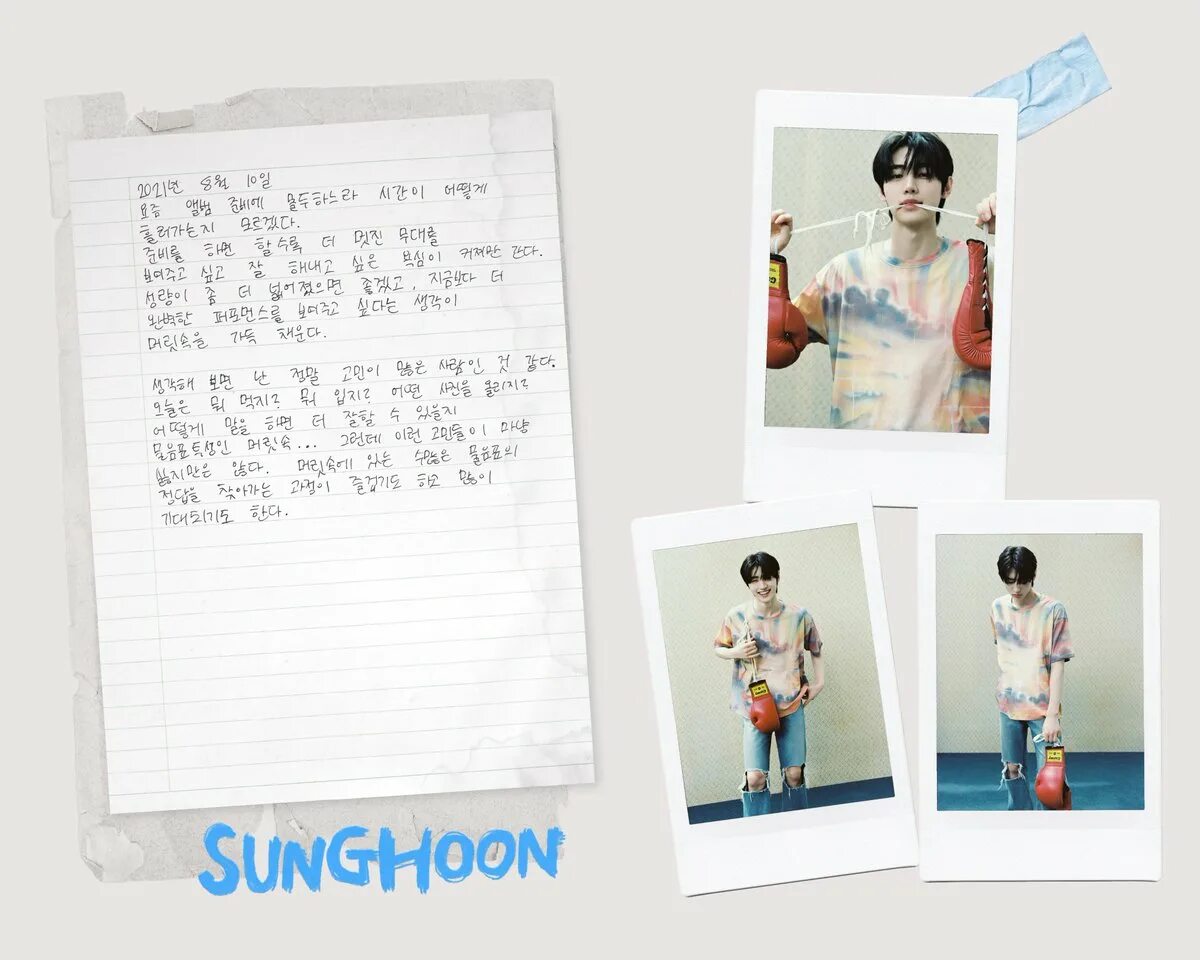 2021년 8월 10일
요즘 앨범 준비에 몰두하느라 시간이 어떻게
흘러가는지 모르겠다.
준비를 하면 할수록 더 멋진 무대를
보여주고 싶고 잘 해내고 싶은 욕심이 커져만 간다.
성량이 좀 더 넓어졌으면 좋겠고, 지금보다 더
완벽한 퍼포먼스를 보여주고 싶다는 생각이
머릿속을 가득 채운다.
생각해 보면 난 정말 고민이 많은 사람인 것 같다.
오늘은 뭐 먹지? 뭐 입지? 어떤 사진을 올리지?
어떻게 말을 하면 더 잘할 수 있을지
물음표투성인 머릿속... 그런데 이런 고민들이 마냥
싫지만은 않다. 머릿속에 있는 수많은 물음표의
정답을 찾아가는 과정이 즐겁기도 하고 많이
기대되기도 한다.
SUNGHOON